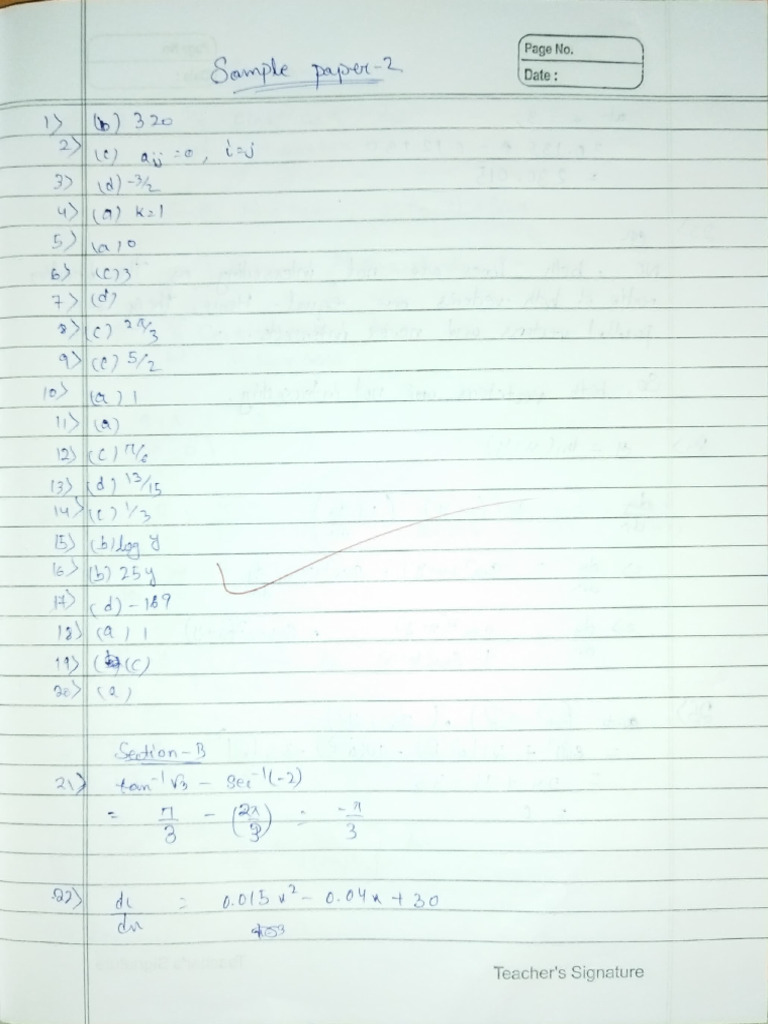 Page No.
Date :
Sample paper-2
1) (b) 320
2) (c) aij = 0, i=j
3) (d) -3/2
4) (a) k=1
5) (a) 0
6) (c) 3
7) (d)
8) (c) 2π/3
9) (c) 5/2
10) (a) 1
11) (a)
12) (c) π/6
13) (d) 13/15
14) (c) 1/3
15) (b) log y
16) (b) 25y
17) (d) -189
18) (a) 1
19) (c)
20) (a)
Section-B
21) tan⁻¹√3 - sec⁻¹(-2)
= π/3 - (2π/3) = -π/3
22) dc/dx = 0.015x² - 0.04x + 30
Teacher's Signature